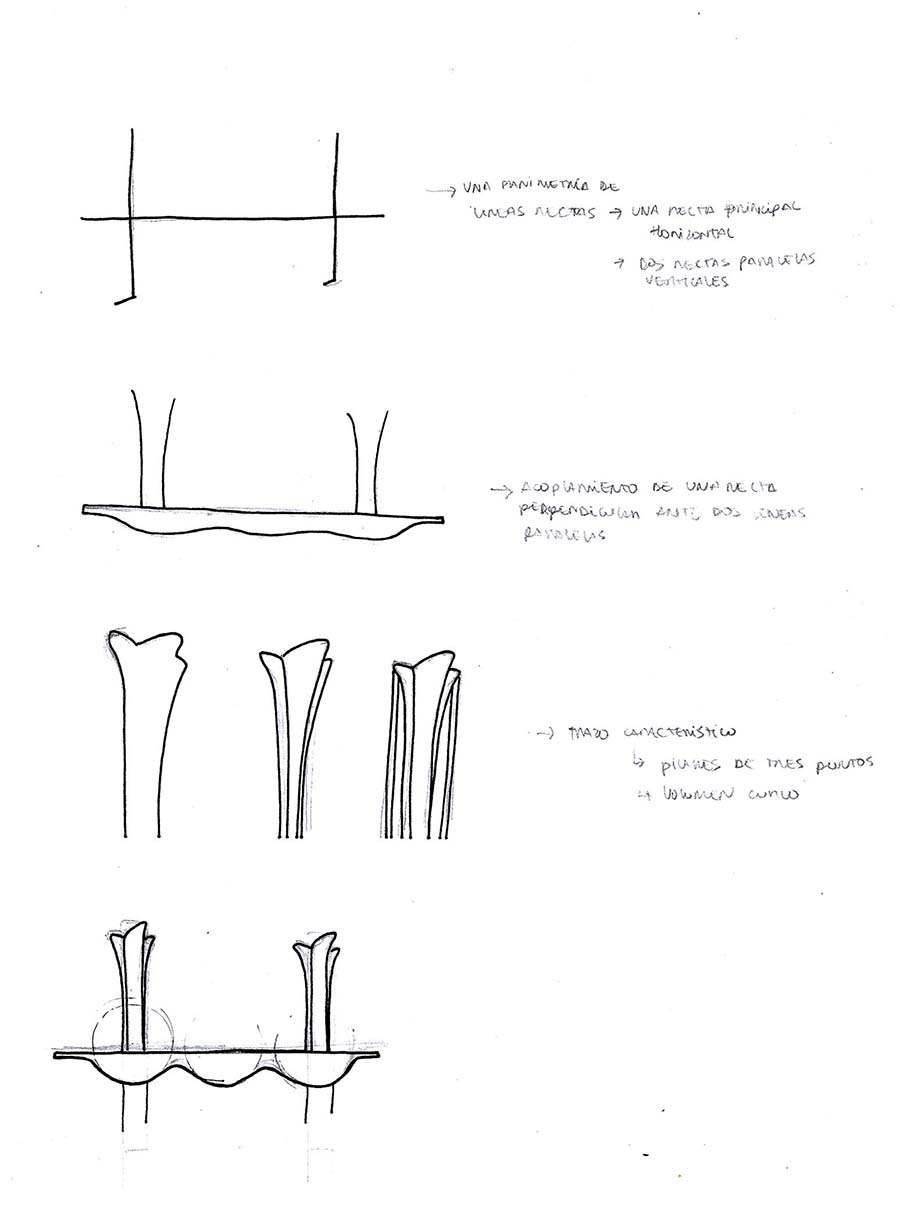 → UNA PLANIMETRÍA DE
LINEAS RECTAS → UNA RECTA PRINCIPAL
HORIZONTAL
→ DOS RECTAS PARALELAS
VERTICALES
→ ACOPLAMIENTO DE UNA RECTA
PERPENDICULAR ANTE DOS LINEAS
PARALELAS
→ TRAZO CARACTERÍSTICO
↳ PILARES DE TRES PUNTOS
↳ VOLUMEN